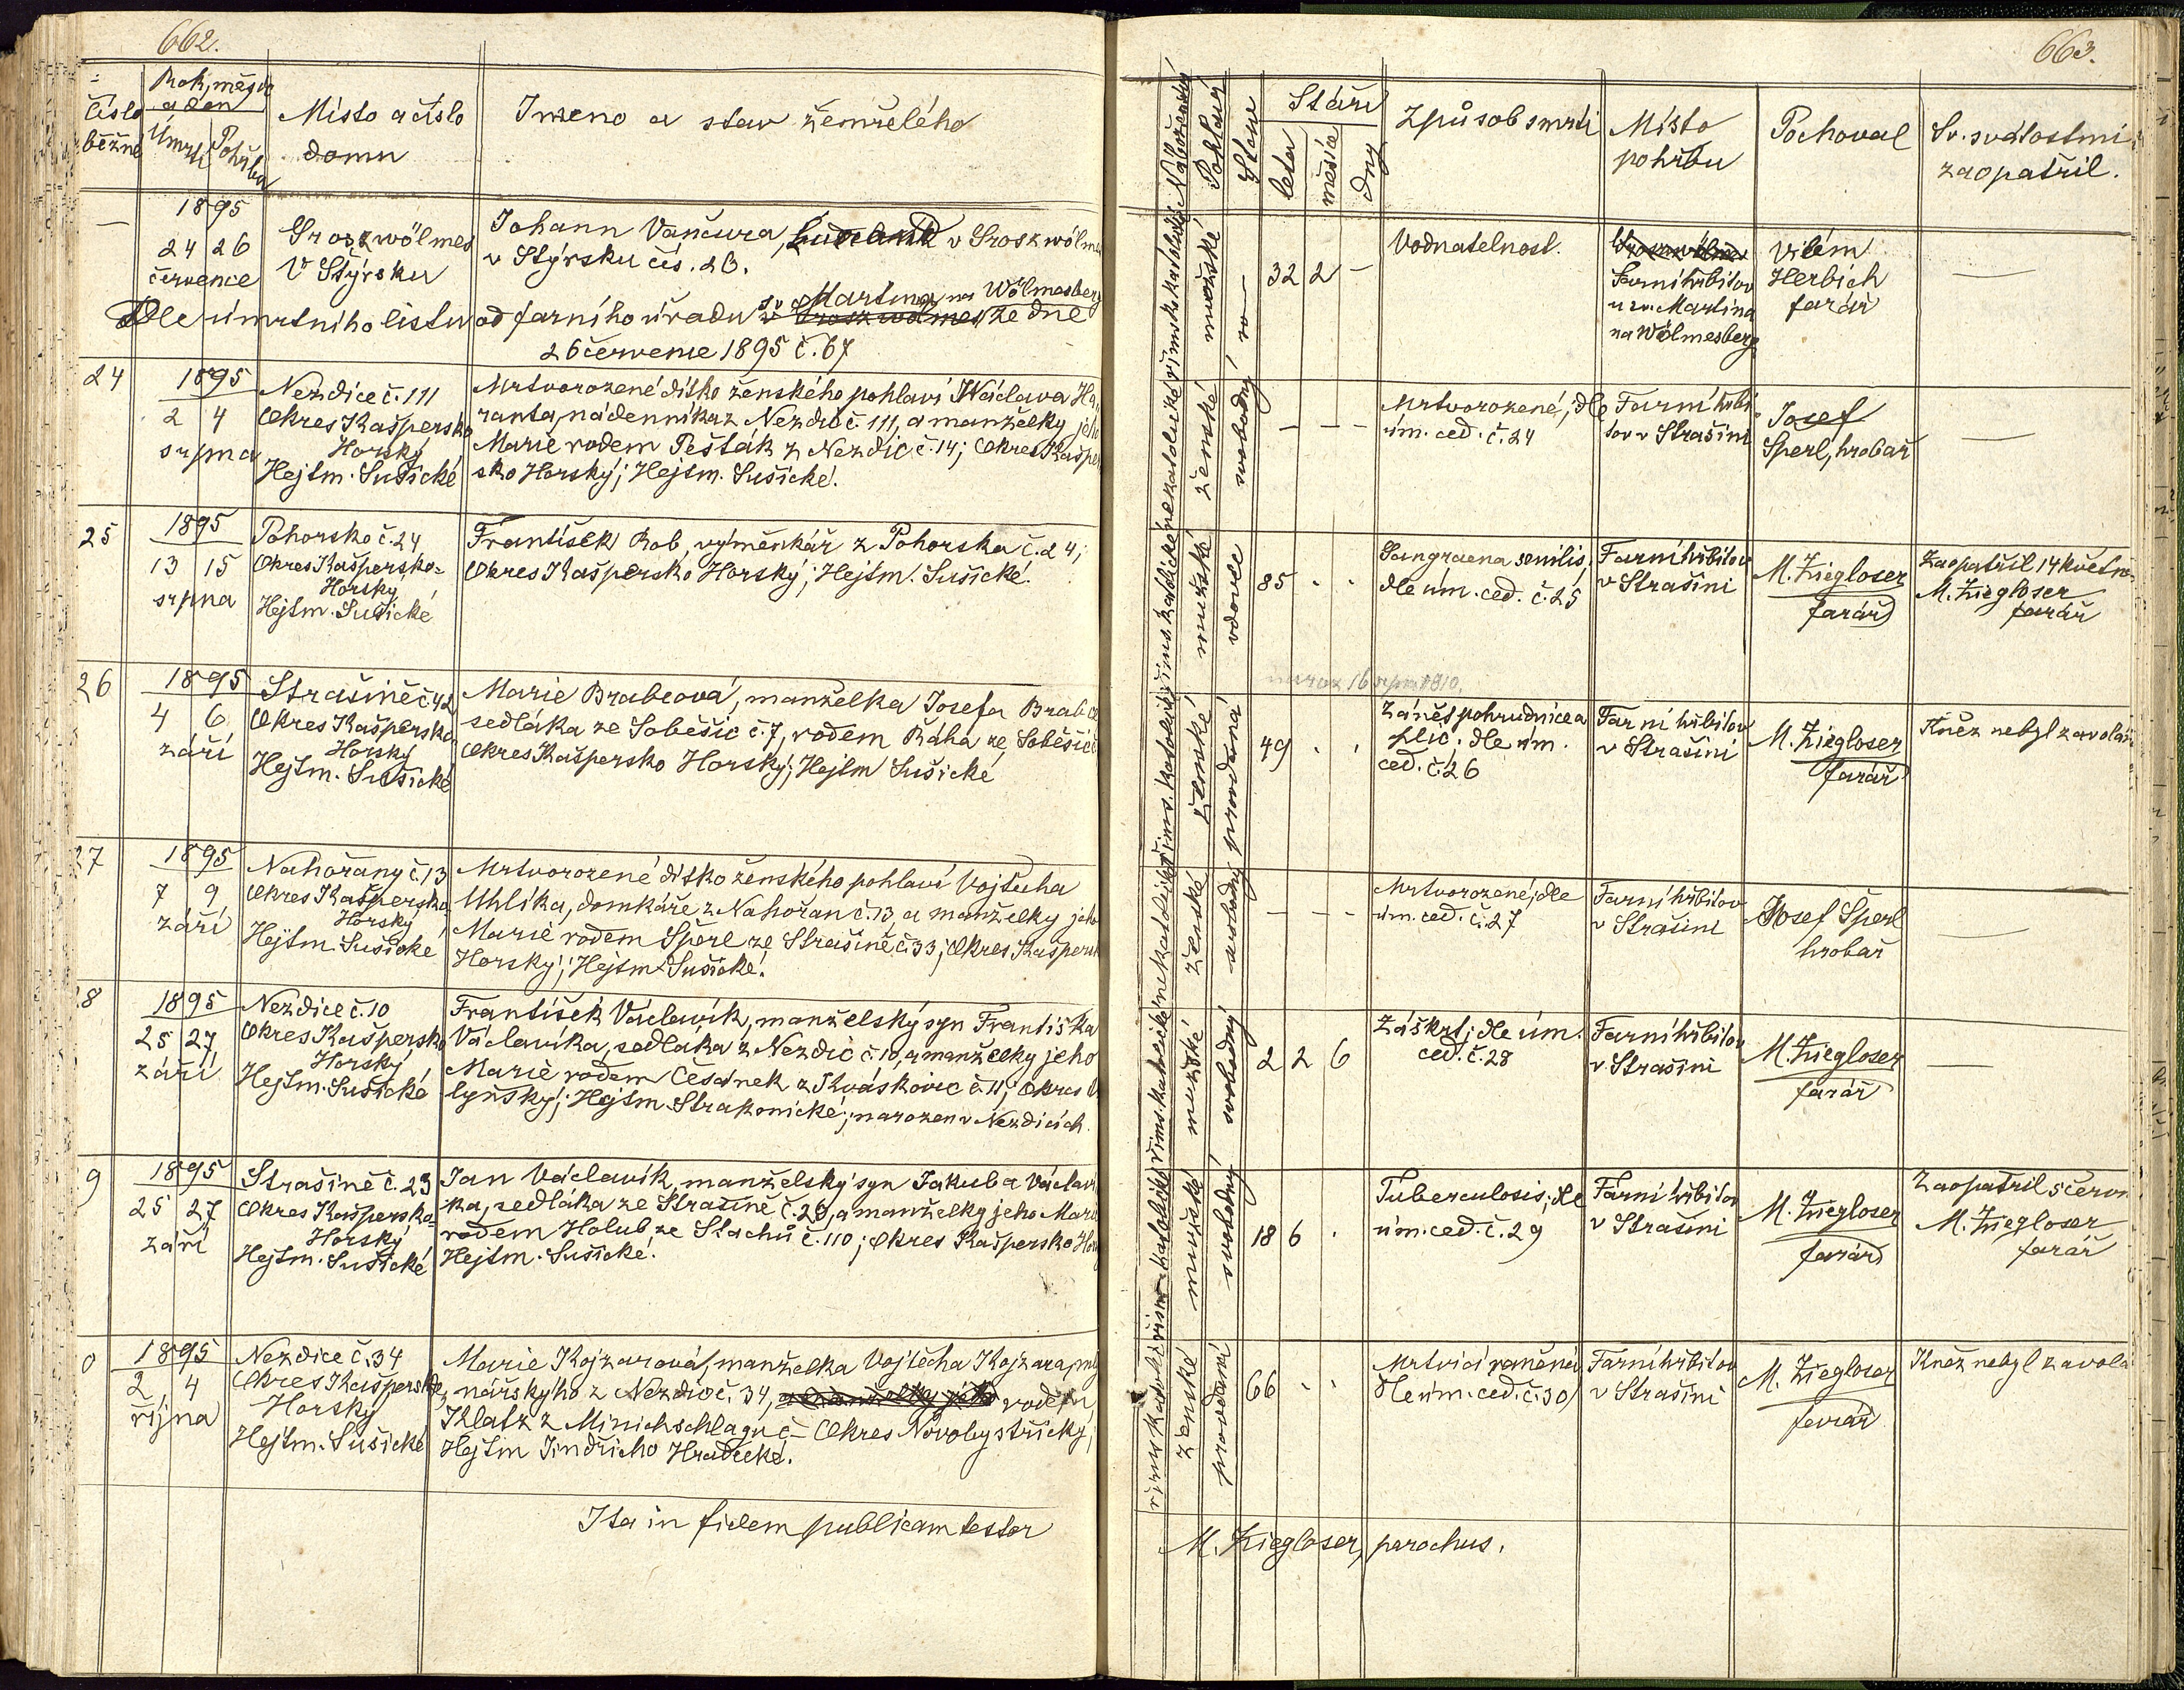 662.
číslo běžné
Rok, měsíc a den
Úmrtí
Pohřbu
Místo a číslo domu
Jmeno a stav zemřelého
—
1895
24 26
července
Groszwölmes
V Štýrsku
Johann Vančura, v Groszwölmes
v Štýrsku čís. 26.
Dle úmrtního listu od farního úřadu sv Martina na Wölmesberg ze dne
26 července 1895 č. 67
24
1895
2 4
srpna
Nezdice č. 111
Okres Kašpersko
Horský
Hejtm. Sušické
Mrtvorozené dítko ženského pohlaví Václava Ha
ranta, nádenníka z Nezdic č. 111, a manželky jeho
Marie rodem Pešták z Nezdic č. 14; Okres Kašper
sko Horský; Hejtm. Sušické.
25
1895
13 15
srpna
Pohorsko č. 24
Okres Kašpersko-
Horský
Hejtm. Sušické
František Rob, výměnkář z Pohorska č. 24;
Okres Kašpersko Horský; Hejtm. Sušické.
26
1895
4 6
září
Strašině č. 42
Okres Kašpersko
Horský
Hejtm. Sušické
Marie Brabcová, manželka Josefa Brabce
sedláka ze Soběšic č. 7, rodem Ráha ze Soběšic
Okres Kašpersko Horský; Hejtm Sušické
27
1895
7 9
září
Nahořany č. 13
Okres Kašpersko
Horský
Hejtm. Sušické
Mrtvorozené dítko ženského pohlaví Vojtěcha
Uhlíka, domkáře z Nahořan č. 13, a manželky jeho
Marie rodem Šperl ze Strašině č. 33; Okres Kaspersk
Horský; Hejtm. Sušické.
28
1895
25 27
září
Nezdice č. 10
Okres Kašpersko
Horský
Hejtm. Sušické
František Václavík, manželský syn Františka
Václavíka, sedláka z Nezdic č. 10, a manželky jeho
Marie rodem Česánek z Kváskovic č. 11; Okres
lyňský; Hejtm. Strakonické; narozen v Nezdicích.
9
1895
25 27
září
Strašině č. 23
Okres Kašpersko-
Horský
Hejtm. Sušické
Jan Václavík, manželský syn Jakuba Václaví
ka, sedláka ze Strašině č. 23, a manželky jeho Marie
rodem Holub ze Stachů č. 110; Okres Kašpersko Hor
Hejtm. Sušické.
0
1895
2 4
října
Nezdice č. 34
Okres Kašpersko
Horský
Hejtm. Sušické
Marie Kojzarová, manželka Vojtěcha Kojzara, mly
nářskýho z Nezdic č. 34, rodem
Klatz z Minichschlagu č — Okres Novobystřický;
Hejtm Jindřicho Hradecké.
Ita in fidem publicam testor
663.
Náboženství
Pohlaví
Stav
Stáří
léta
měsíce
dny
Způsob smrti
Místo pohřbu
Pochoval
Sv. svátostmi
zaopatřil.
mužské
32 2 —
Vodnatelnost.
Farní hřbitov
u sv. Martina
na Wölmesberg
Vilém
Herbich
farář
—
ženské
svobodný
— — —
Mrtvorozené; dle
úm. ced. č. 24
Farní hřbi
tov v Strašini
Josef
Šperl, hrobař
—
mužské
vdovec
85 . .
Gangraena senilis,
dle úm. ced. č. 25
Farní hřbitov
v Strašini
M. Ziegloser
farář
Zaopatřil 14 květn
M. Ziegloser
farář
naroz 16 srpna 1810.
ženské
provdaná
49 . .
Zánět pohrudnice a
plic; dle úm.
ced. č. 26
Farní hřbitov
v Strašini
M. Ziegloser
farář
Kněz nebyl zavolán
ženské
svobodný
— — —
Mrtvorozené; dle
úm. ced. č. 27
Farní hřbitov
v Strašini
Josef Šperl
hrobař
—
mužské
svobodný
2 2 6
Záškrt; dle úm.
ced. č. 28
Farní hřbitov
v Strašini
M. Ziegloser
farář
—
mužské
svobodný
18 6 .
Tuberculosis; dle
úm. ced. č. 29
Farní hřbitov
v Strašini
M. Ziegloser
farář
Zaopatřil 5 červn
M. Ziegloser
farář
ženské
provdaná
66 . .
Mrtvicí raněná
dle úm. ced. č. 30
Farní hřbitov
v Strašini
M. Ziegloser
farář
Kněz nebyl zavolá
M. Ziegloser, parochus.